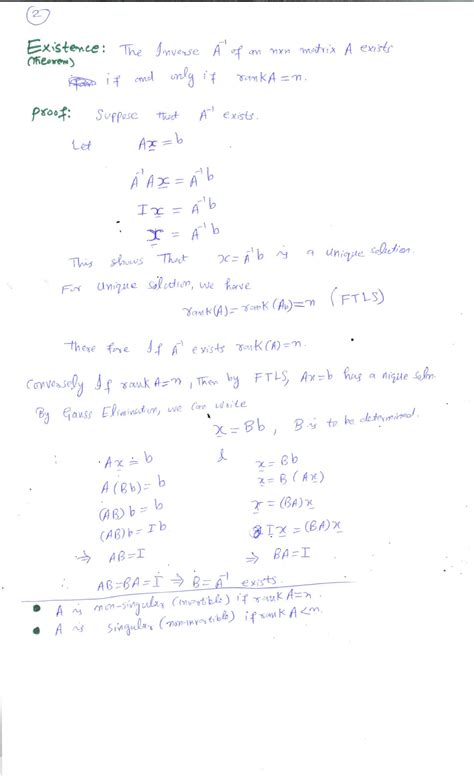 2
Existence: The Inverse A⁻¹ of an nxn matrix A exists
(Theorem) if and only if rankA = n.
Proof: Suppose that A⁻¹ exists.
Let Ax = b
A⁻¹Ax = A⁻¹b
Ix = A⁻¹b
x = A⁻¹b
This shows That x = A⁻¹b is a unique solution.
For Unique solution, we have
rank(A) = rank(Ab) = n (FTLS)
There fore If A⁻¹ exists rank(A) = n.
Conversely If rank A = n, Then by FTLS, Ax = b has a nique soln.
By Gauss Elimination, we can write
x = Bb, B is to be determined.
∵ Ax = b & x = Bb
A(Bb) = b x = B(Ax)
(AB)b = b x = (BA)x
(AB)b = Ib Ix = (BA)x
⇒ AB = I ⇒ BA = I
∴ AB = BA = I ⇒ B = A⁻¹ exists.
• A is non-singular (invertible) if rank A = n.
• A is singular (non-invertible) if rank A < n.